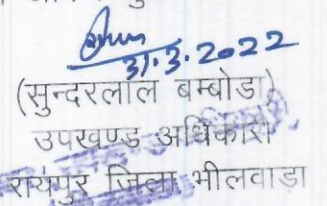 31.3.2022
(सुन्दरलाल बम्बोडा)
उपखण्ड अधिकारी
रायपुर जिला भीलवाडा